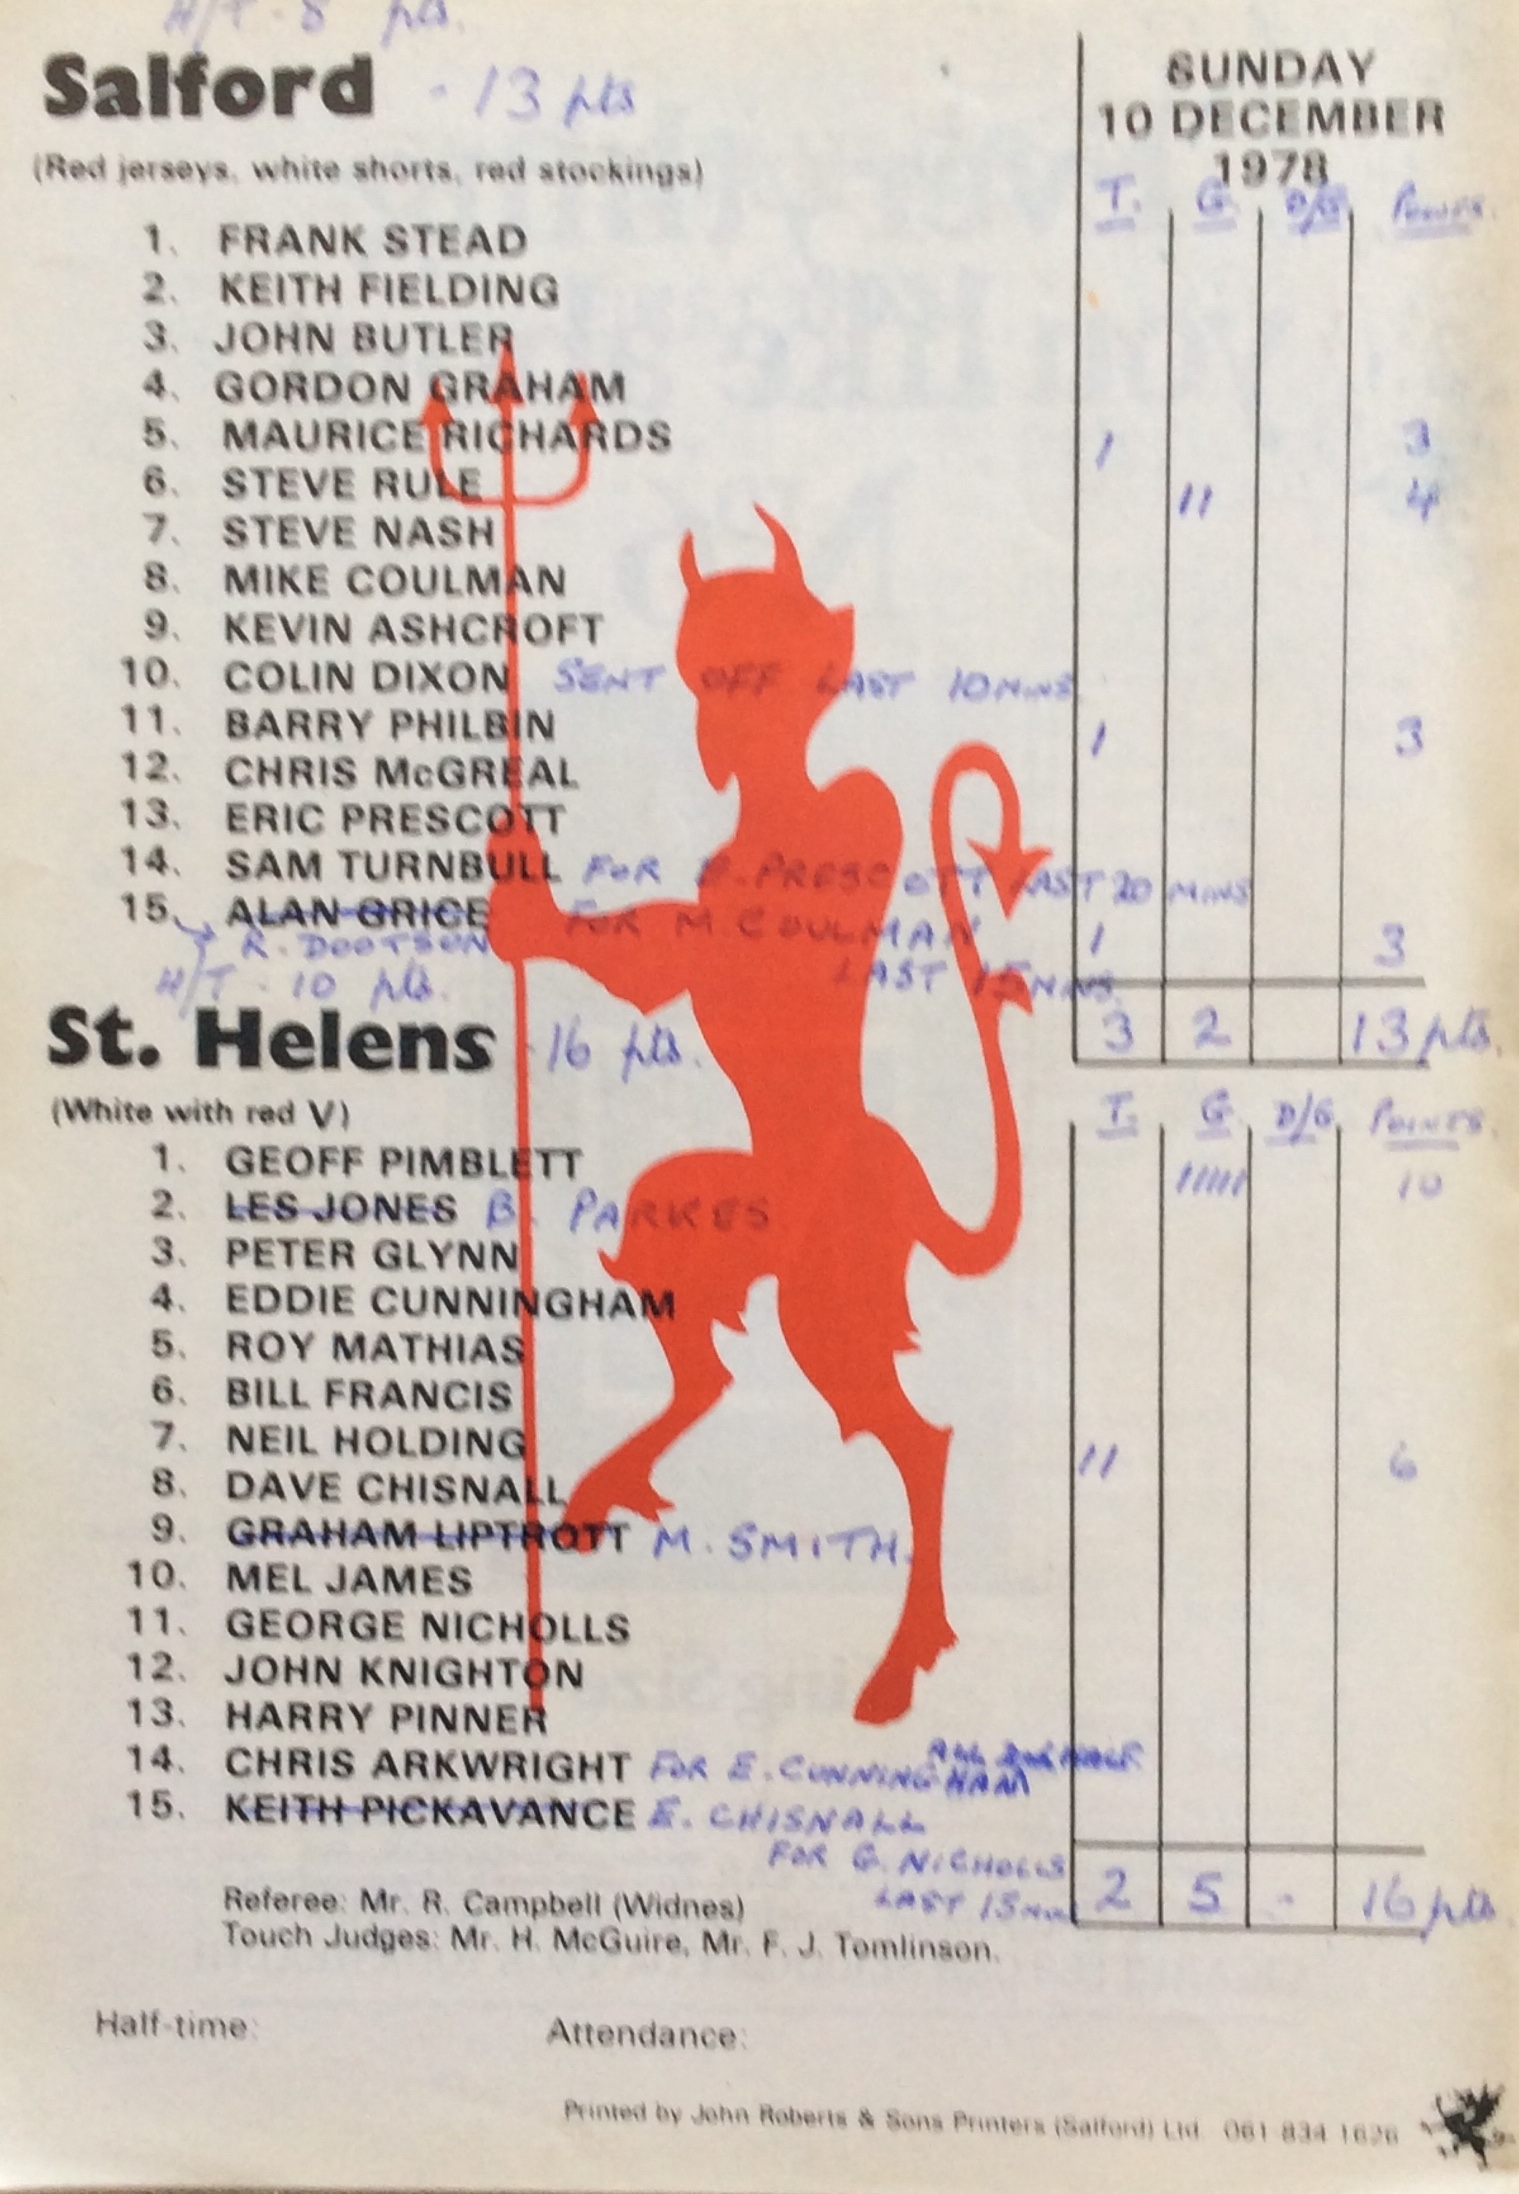 H/T - 8 pts.
Salford - 13 pts
(Red jerseys, white shorts, red stockings)
SUNDAY
10 DECEMBER
1978
T. G. D/G. POINTS.
1. FRANK STEAD
2. KEITH FIELDING
3. JOHN BUTLER
4. GORDON GRAHAM
5. MAURICE RICHARDS 1 3
6. STEVE RULE 11 4
7. STEVE NASH
8. MIKE COULMAN
9. KEVIN ASHCROFT
10. COLIN DIXON SENT OFF LAST 10 MINS.
11. BARRY PHILBIN 1 3
12. CHRIS McGREAL
13. ERIC PRESCOTT
14. SAM TURNBULL FOR E. PRESCOTT LAST 20 MINS
15. ALAN GRICE FOR M. COULMAN 1 3
R. DOOTSON LAST 15 MINS.
3 2 13 pts.
H/T - 10 pts.
St. Helens - 16 pts.
(White with red V)
T. G. D/G. POINTS.
1. GEOFF PIMBLETT 11111 10
2. LES JONES B. PARKES
3. PETER GLYNN
4. EDDIE CUNNINGHAM
5. ROY MATHIAS
6. BILL FRANCIS
7. NEIL HOLDING 11 6
8. DAVE CHISNALL
9. GRAHAM LIPTROTT M. SMITH.
10. MEL JAMES
11. GEORGE NICHOLLS
12. JOHN KNIGHTON
13. HARRY PINNER
14. CHRIS ARKWRIGHT FOR E. CUNNINGHAM ALL 2nd HALF
15. KEITH PICKAVANCE E. CHISNALL
FOR G. NICHOLLS
LAST 15 MIN
2 5 - 16 pts.
Referee: Mr. R. Campbell (Widnes)
Touch Judges: Mr. H. McGuire, Mr. F. J. Tomlinson.
Half-time: Attendance:
Printed by John Roberts & Sons Printers (Salford) Ltd. 061-834 1626